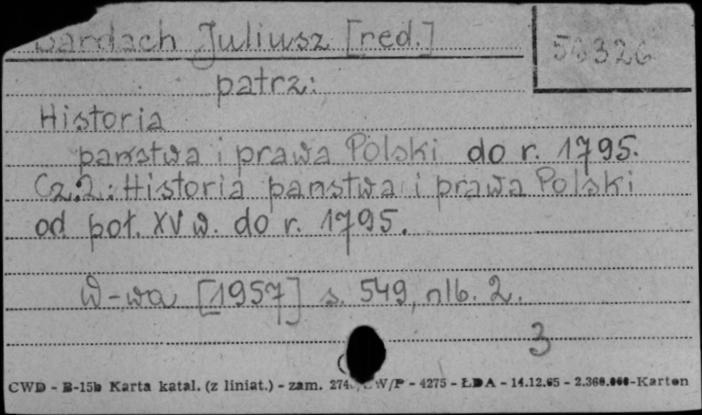 Bardach Juliusz [red.]
58326
patrz:
Historia
państwa i prawa Polski do r. 1795.
Cz. 2.: Historia państwa i prawa Polski
od poł. XV w. do r. 1795.
W-wa [1957] s. 549, nlb. 2.
3
CWD - B-15b Karta katal. (z liniat.) - zam. 274 W/P - 4275 - ŁDA - 14.12.65 - 2.360.000-Karton